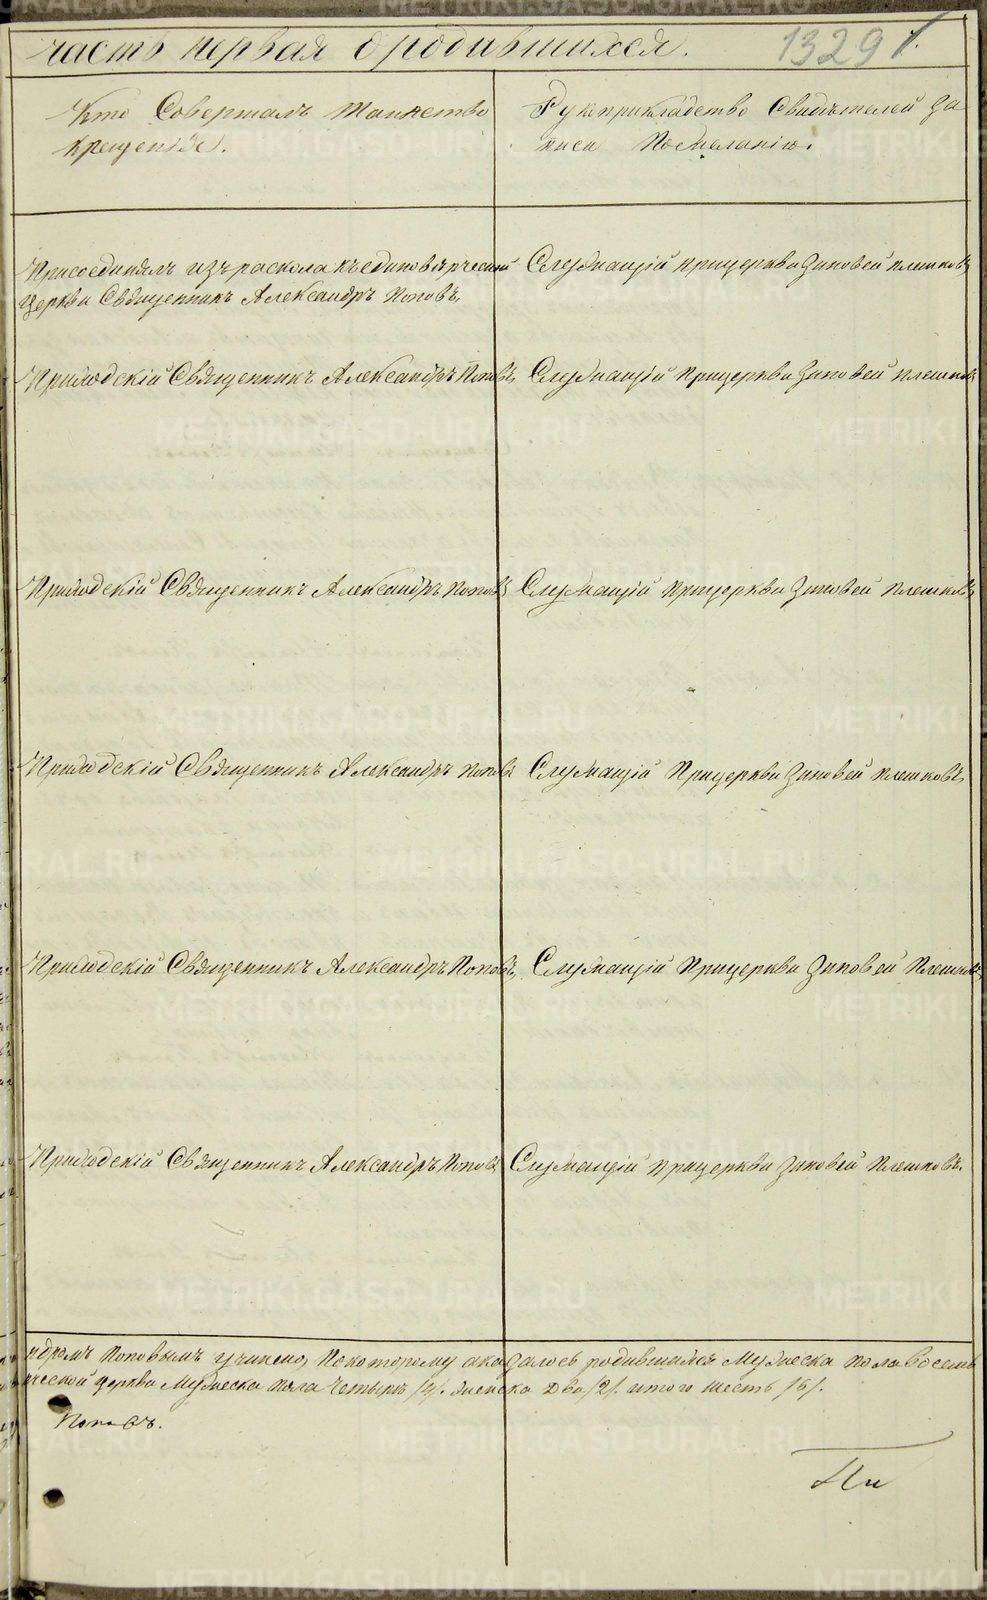 часть первая о родившихся. 1329
Кто Совершалъ Таинство
крещенія.
Рукоприкладство Свидѣтелей за
писи Пожеланію.
Присоединялъ изъ раскола къ единовѣрческой
церкви Священникъ Александръ Поповъ,
Служащій прицеркви Зиновей плешковъ
Приходскій Священникъ Александръ Поповъ, Служащій прицеркви Зиновей плешковъ
Приходскій Священникъ Александръ Поповъ Служащій прицеркви Зиновей плешковъ
Приходскій Священникъ Александръ Поповъ Служащій Прицеркви Зиновей плешковъ,
Приходскій Священникъ Александръ Поповъ, Служащій Прицеркви Зиновей Плешковъ
Приходскій Священникъ Александръ Поповъ Служащій прицеркви Зиновей Плешковъ.
ндромъ Поповымъ учинено, Покоторому оказалось родившихся Мужеска пола восемь
ческой церкви Мужеска пола Четыри /4/. женска Два /2/. итого шесть /6/.
Поповъ.
METRIKI.GASO-URAL.RU